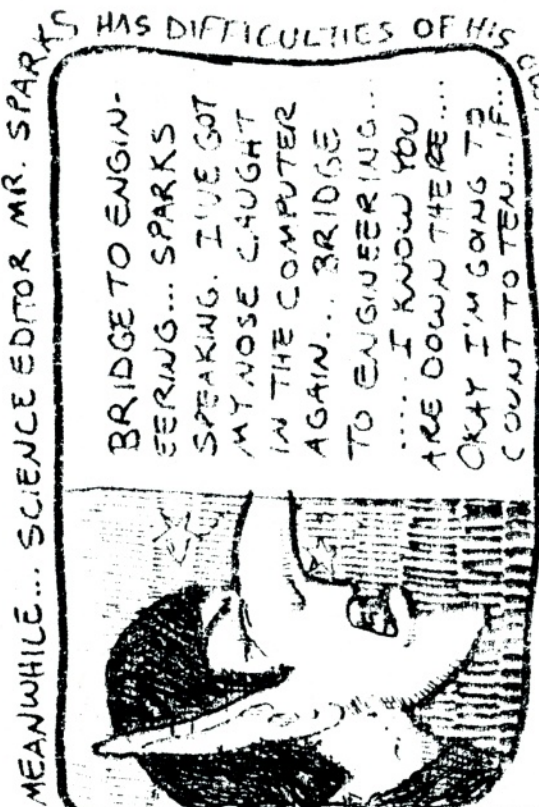 MEANWHILE... SCIENCE EDITOR MR. SPARKS HAS DIFFICULTIES OF HIS OWN
BRIDGE TO ENGIN-
EERING... SPARKS
SPEAKING. I'VE GOT
MY NOSE CAUGHT
IN THE COMPUTER
AGAIN... BRIDGE
TO ENGINEERING...
..... I KNOW YOU
ARE DOWN THERE....
OKAY I'M GOING TO
COUNT TO TEN... IF...